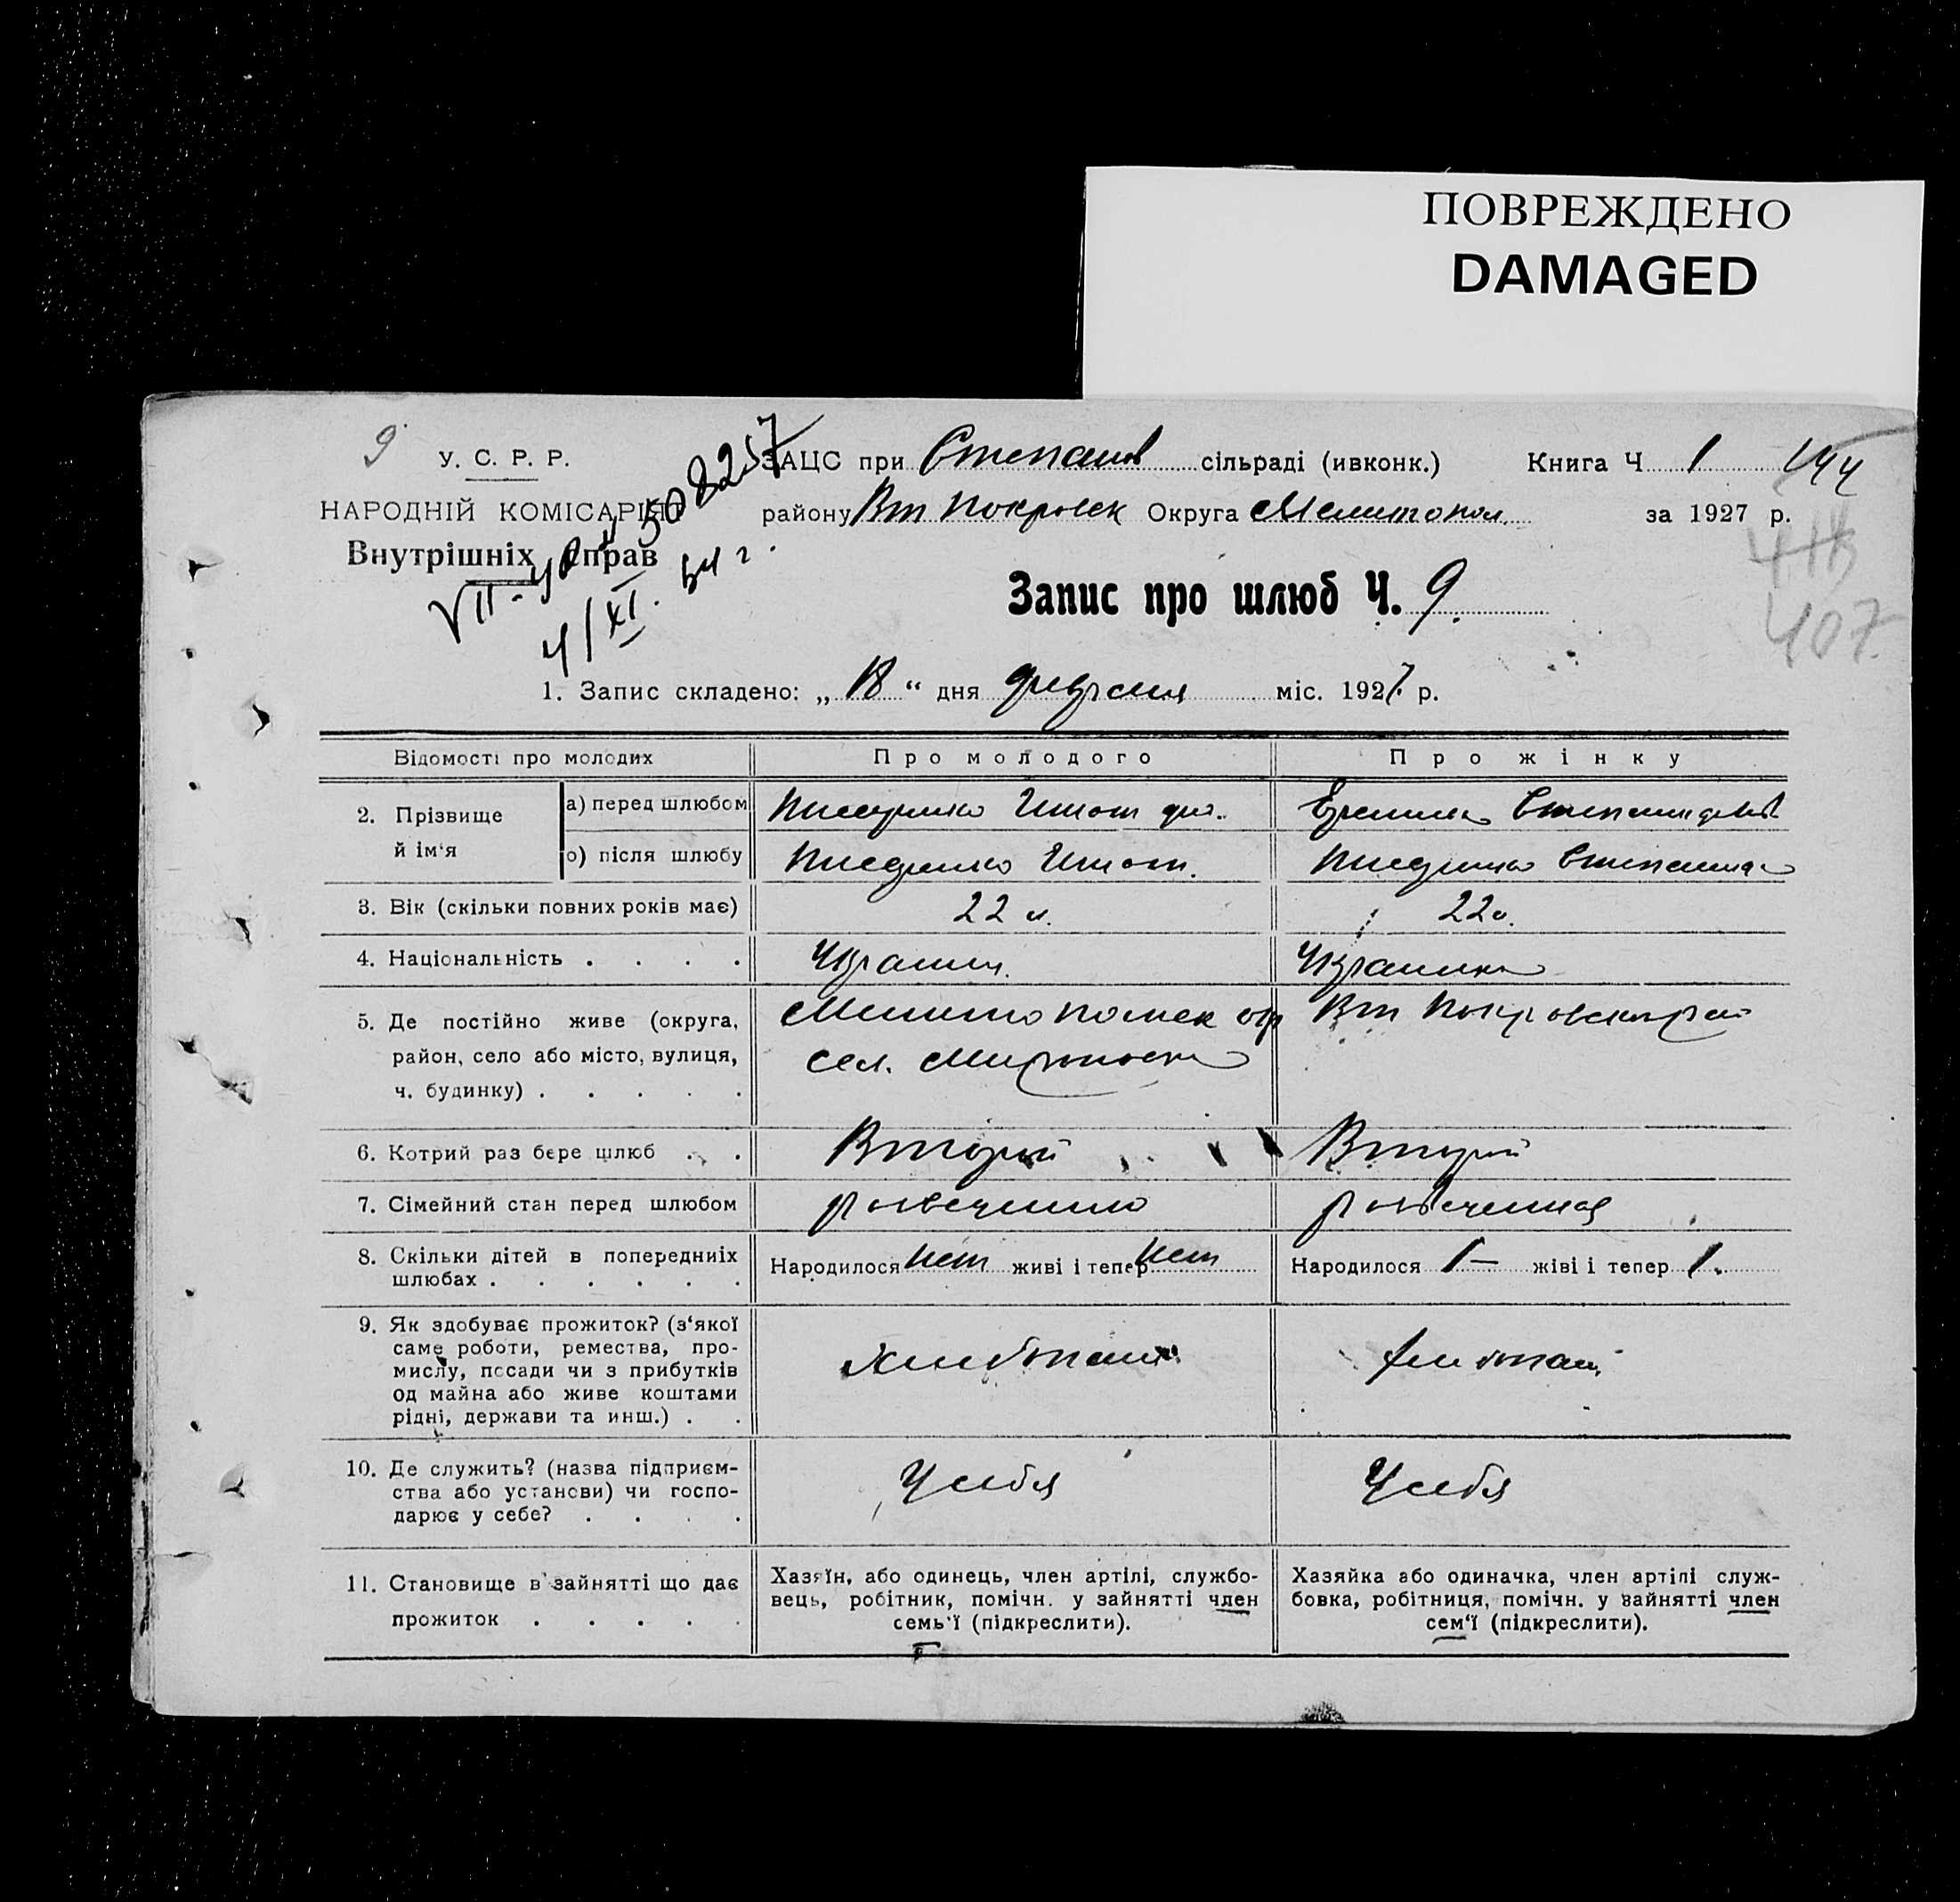 ПОВРЕЖДЕНО
DAMAGED
9
У. С. Р. Р.
НАРОДНІЙ КОМІСАРІЯТ
Внутрішніх Справ
508257
4/XI. 54 г.
ЗАЦС при Степанов сільраді (ивконк.) Книга Ч 1 144
району Вт Покровск Округа Мелитопол. за 1927 р.
418
407.
Запис про шлюб Ч. 9.
1. Запис складено: „ 18 “ дня февраля міс. 1927 р.
Відомості про молодих Про молодого Про жінку
2. Прізвище й ім‘я
а) перед шлюбом
о) після шлюбу
3. Вік (скільки повних років має) 22 л. 22 л.
4. Національність . . . . Украин. Украинка
5. Де постійно живе (округа, Мелитопольск окр Вт Покровский рай
район, село або місто, вулиця, сел.
ч. будинку) . . . . .
6. Котрий раз бере шлюб . . Второй Второй
7. Сімейний стан перед шлюбом разведенная
8. Скільки дітей в попередниіх Народилося нет живі і тепер нет Народилося 1 — жіві і тепер 1.
шлюбах . . . . . .
9. Як здобуває прожиток? (з‘якої
саме роботи, ремества, про-
мислу, посади чи з прибутків хлебопаш. хлебопаш.
од майна або живе коштами
рідні, держави та инш.) . .
10. Де служить? (назва підприєм-
ства або установи) чи госпо- У себя У себя
дарює у себе? . . . .
11. Становище в зайнятті що дає
прожиток . . . . .
Хазяїн, або одинець, член артілі, службо-
вець, робітник, помічн. у зайнятті член
семь‘ї (підкреслити).
Хазяйка або одиначка, член артілі служ-
бовка, робітниця, помічн. у зайнятті член
сем‘ї (підкреслити).